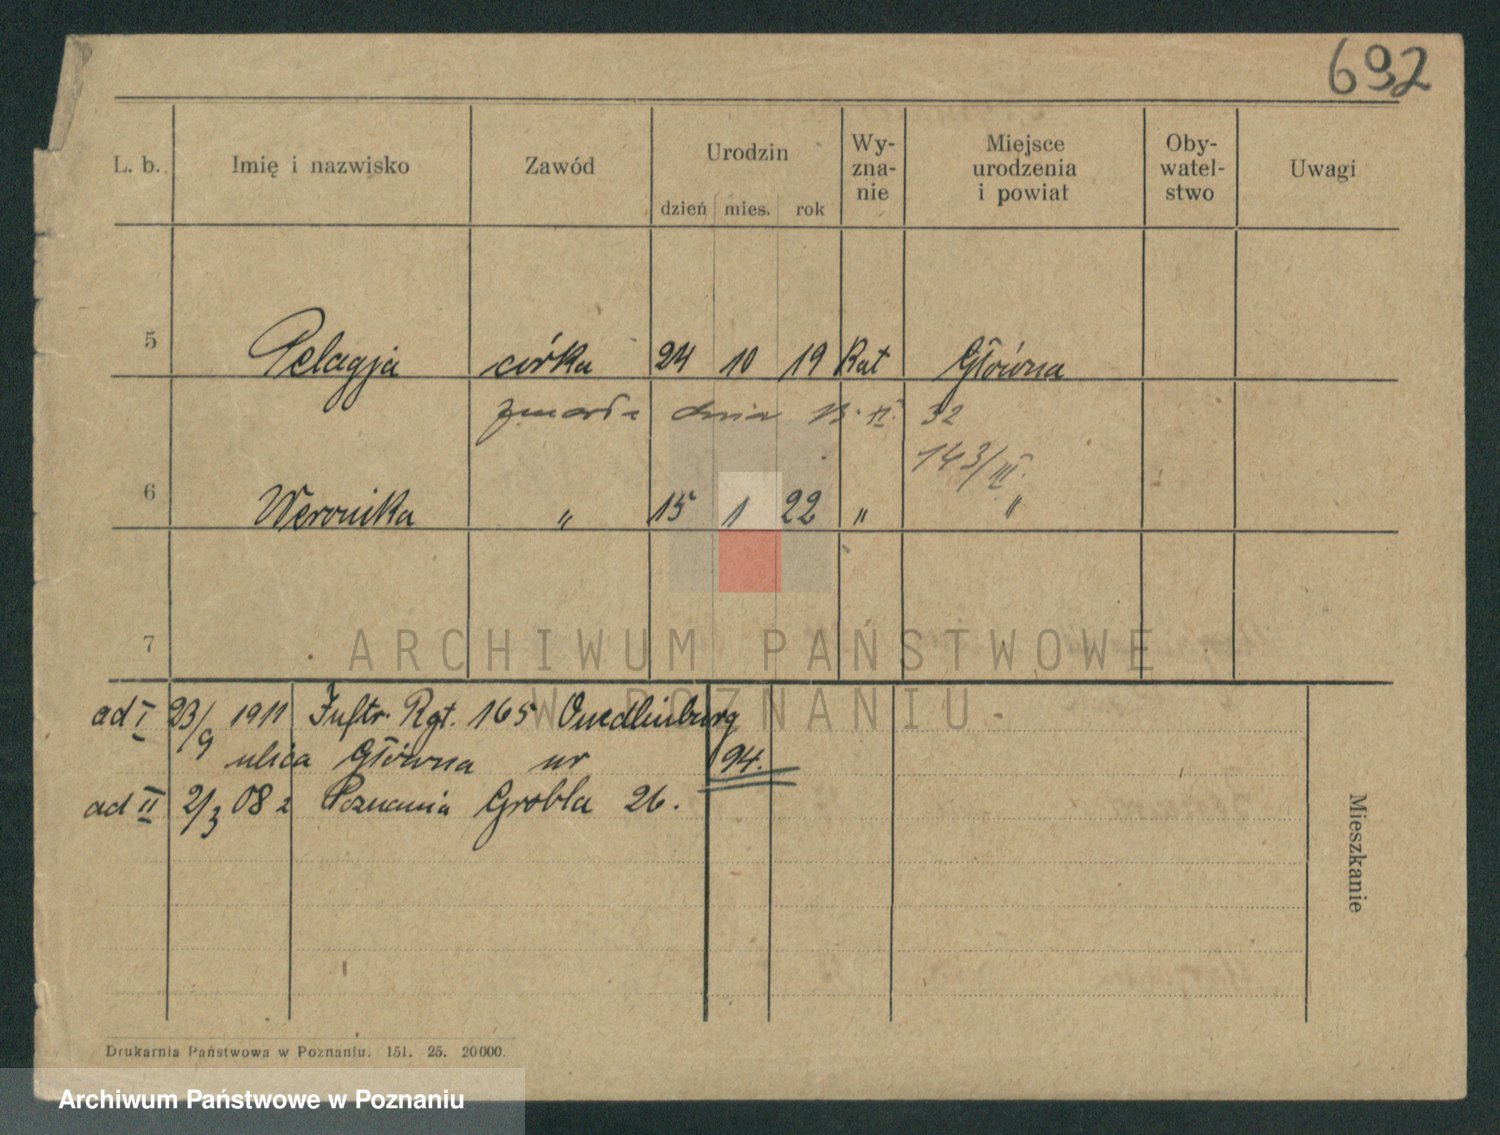 692
L. b. Imię i nazwisko Zawód Urodzin Wy-zna-nie Miejsce urodzenia i powiat Oby-watel-stwo Uwagi
dzień mies. rok
5 Pelagja córka 24 10 19 Kat Główna
zmarła dnia 13. II. 32
143/III.
6 Weronika " 15 1 22 " "
7
ARCHIWUM PAŃSTWOWE
W POZNANIU
ad I 23/9 1911 Inftr. Rgt. 165 Quedlinburg
ulica Główna nr 94.
ad II 2/3 08 z Poznania Grobla 26.
Mieszkanie
Drukarnia Państwowa w Poznaniu. 151. 25. 20000.
Archiwum Państwowe w Poznaniu